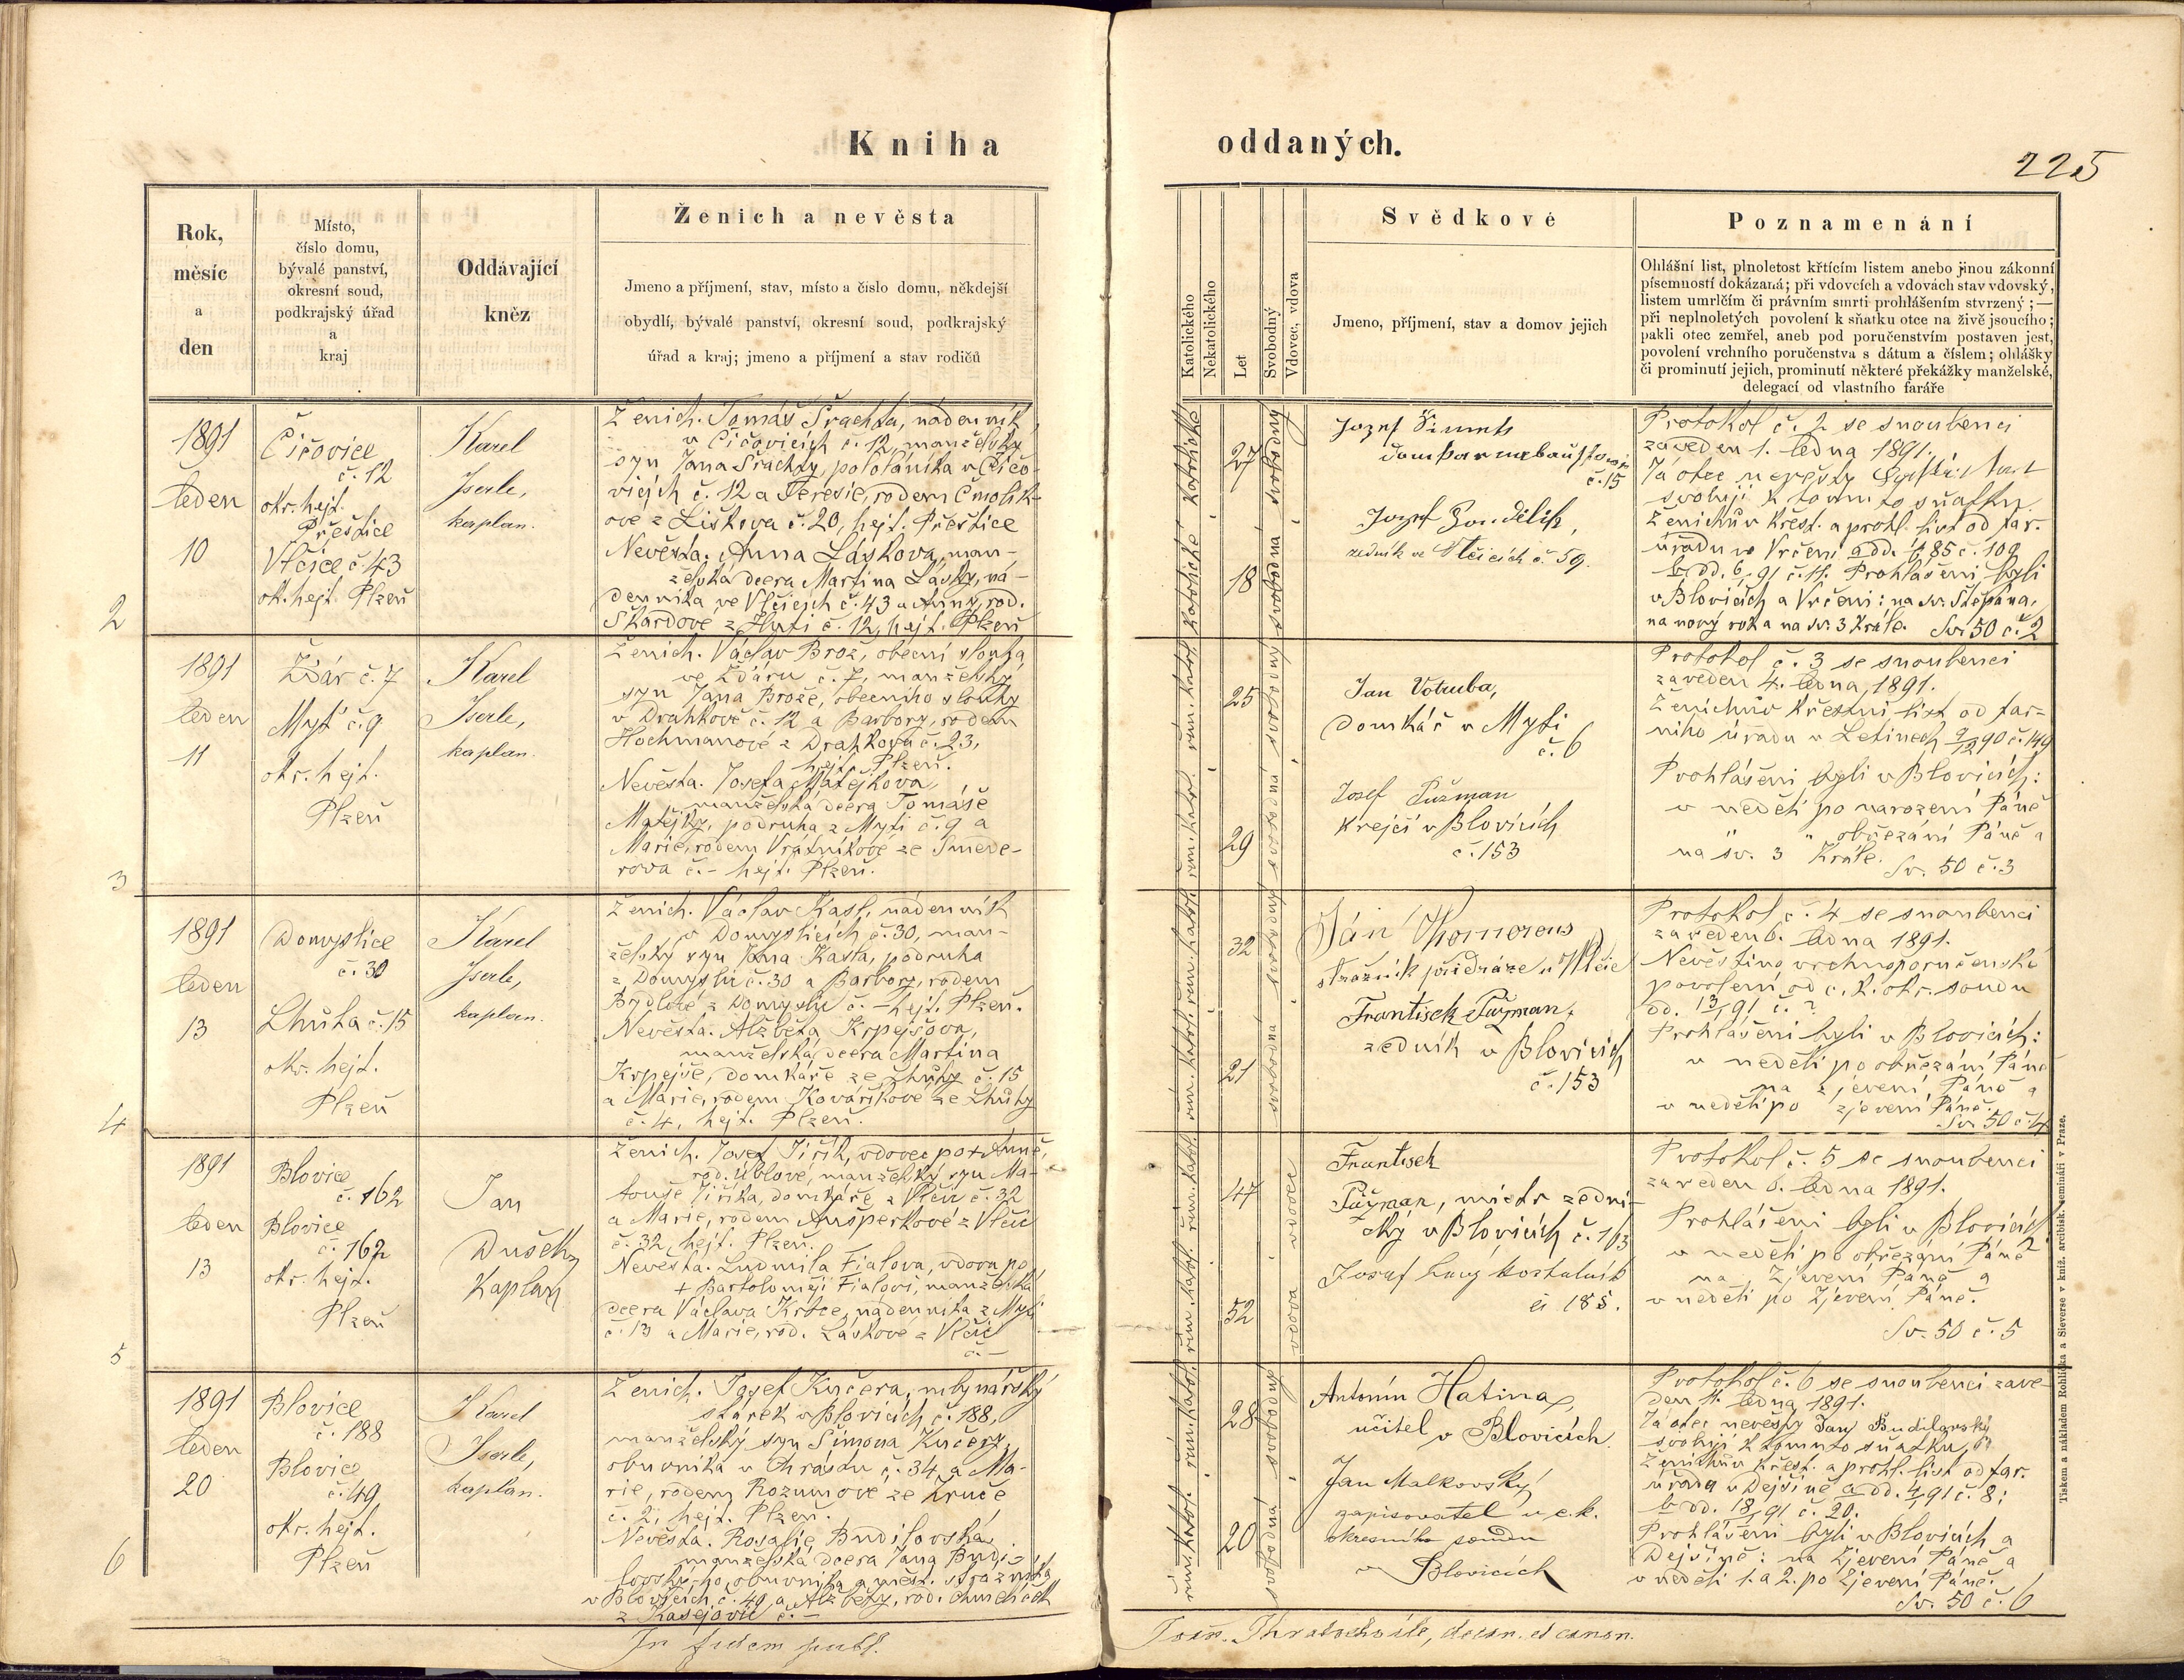 Kniha oddaných.
225
Rok,
měsíc
a
den
Místo,
číslo domu,
bývalé panství,
okresní soud,
podkrajský úřad
a
kraj
Oddávající
kněz
Ženich a nevěsta
Jmeno a příjmení, stav, místo a čislo domu, někdejší
obydlí, bývalé panství, okresní soud, podkrajský
úřad a kraj; jmeno a příjmení a stav rodičů
Katolického
Nekatolického
Let
Svobodný
Vdovec, vdova
Svědkové
Jmeno, příjmení, stav a domov jejich
Poznamenání
Ohlášní list, plnoletost křtícím listem anebo jinou zákonní
písemností dokázaná; při vdovcích a vdovách stav vdovský,
listem umrlčím či právním smrti prohlášením stvrzený; —
při neplnoletých povolení k sňatku otce na živě jsoucího;
pakli otec zemřel, aneb pod poručenstvím postaven jest,
povolení vrchního poručenstva s dátum a číslem; ohlášky
či prominutí jejich, prominutí některé překážky manželské,
delegací od vlastního faráře
2
1891
leden
10
Čičovice
č. 12
okr. hejt.
Přeštice
Vlčice č 43
ok. hejt. Plzeň
Karel
Iserle,
kaplan.
Ženich. Tomáš Šrachta, nádenník
v Čičovicích č. 12, manželský
syn Jana Šrachty, pololáníka v Čičo-
vicích č. 12 a Teresie, rodem Čmolík-
ové z Liškova č. 20, hejt. Přeštice
Nevěsta. Anna Láskova, man-
želská dcera Martina Lásky, ná-
denníka ve Vlčicích č. 43 a Anny, rod.
Škardové z Huti č. 12, hejt. Plzeň
27
18
Jozef
č. 15
Jozef Gondělík,
zedník ve Vlčicích č. 59.
Protokol č. 2 se snoubenci
zaveden 1. ledna 1891.
Já otec nevěsty
svoluji k tomuto sňatku.
Ženichův křest. a prohl. list od far.
úřadu ve Vrčeni
Prohlášeni byli
v Blovicích a Vrčeni: na sv. Štěpána,
na nový rok a na sv. 3 Krále. Sv. 50 č. 2
3
1891
leden
11
Ždár č. 7
Myť č. 9
okr. hejt.
Plzeň
Karel
Iserle,
kaplan.
Ženich. Václav Brož, obecní slouha
ve Ždáru č. 7, manželský
syn Jana Brože, obecního slouhy
v Drahkově č. 12 a Barbory, rodem
Hochmanové z Drahkova č. 23,
hejt. Plzeň.
Nevěsta. Josefa Matějkova,
manželská dcera Tomáše
Matějky, podruha z Myti č. 9 a
Marie, rodem Vrátníkové ze Smede-
rova č. - hejt. Plzeň.
25
29
Jan Votruba,
Domkář v Myti
č. 6
Josef Pužman
Krejčí v Blovicích
č. 153
Protokol č. 3 se snoubenci
zaveden 4. ledna 1891.
Ženichův křestní list od far-
ního úřadu v Letinech 9/12 90 č. 149
Prohlášeni byli v Blovicích:
v neděli po narození Páně
" " obřezání Páně a
na sv. 3 Krále.
Sv. 50 č. 3
4
1891
leden
13
Domyslice
č. 30
Lhůta č. 15
okr. hejt.
Plzeň
Karel
Iserle,
kaplan.
Ženich. Václav Kasl, nádenník
v Domyslicích č. 30, man-
želský syn Jana Kasla, podruha
z Domyslic č. 30 a Barbory, rodem
Bydlové z Domyslic č. - hejt. Plzeň.
Nevěsta. Alžběta Krpejšova,
manželská dcera Martina
Krpejše, domkáře ze Lhůty č. 15
a Marie, rodem Kovaříkové ze Lhůty
č. 4, hejt. Plzeň.
32
21
Ján Komorous
strážník při dráze u Vlčic
František Pužman,
zedník v Blovicích
č. 153
Protokol č. 4 se snoubenci
zaveden 6. ledna 1891.
Nevěstino vrchnoporučenské
povolení od c. k. okr. soudu
dd. 13/1 91 č. ?
Prohlášeni byli v Blovicích:
v neděli po obřezání Páně
na zjevení Páně a
v neděli po zjevení Páně.
Sv. 50 č. 4
5
1891
leden
13
Blovice
č. 162
Blovice
č. 162
okr. hejt.
Plzeň
Jan
Dušek
Kaplan
Ženich. Josef Jiřík, vdovec po + Anně,
rod. Úblové, manželský syn Ma-
touše Jiříka, domkáře z Vlčic č. 32
a Marie, rodem Aušperkové z Vlčic
č. 32, hejt. Plzeň.
Nevěsta. Ludmila Fialova, vdova po
+ Bartoloměji Fialovi, manželská
dcera Václava Krbce, nádenníka z Myti
č. 13 a Marie, rod. Láskové z Vlčic
č. -
47
vdovec
52
vdova
František
Pužman, mistr zedni-
cký v Blovicích č. 163
Josef
č. 185.
Protokol č. 5 se snoubenci
zaveden 6. ledna 1891.
Prohlášeni byli v Blovicích
v neděli po obřezání Páně
na Zjevení Páně a
v neděli po Zjevení Páně.
Sv. 50 č. 5
6
1891
leden
20
Blovice
č. 188
Blovice
č. 49
okr. hejt.
Plzeň
Karel
Iserle,
kaplan.
Ženich. Josef Kučera, mlynářský
stárek v Blovicích č. 188,
manželský syn Šimona Kučery,
obuvníka v Chrástu č. 34 a Ma-
rie, rodem Rozumové ze Kruče
č. 2, hejt. Plzeň.
Nevěsta. Rosalie Budilovská,
manželská dcera Jana Budi-
lovského, obuvníka a měst. strážníka
v Blovicích č. 49 a Alžběty, rod.
z Kasejovic č. -
28
svobodný
20
svobodná
Antonín Hatina,
učitel v Blovicích.
Jan Malkovský
zapisovatel u c. k.
okresního soudu
v Blovicích
Protokol č. 6 se snoubenci zave-
den 11. ledna 1891.
Já otec nevěsty Jan Budilovský
svoluji k tomuto sňatku,
Ženichův křest. a prohl. list od far.
úřadu v Dejšině a dd. 4/1 91 č. 8;
b dd. 18/1 91 č. 20.
Prohlášeni byli v Blovicích a
Dejšině: na Zjevení Páně a
v neděli 1. a 2. po Zjevení Páně.
Sv. 50 č. 6
In fidem publ.
decan. et canon.
Tiskem a nákladem Rohlíčka a Sieverse v kníž. arcibisk. semináři v Praze.